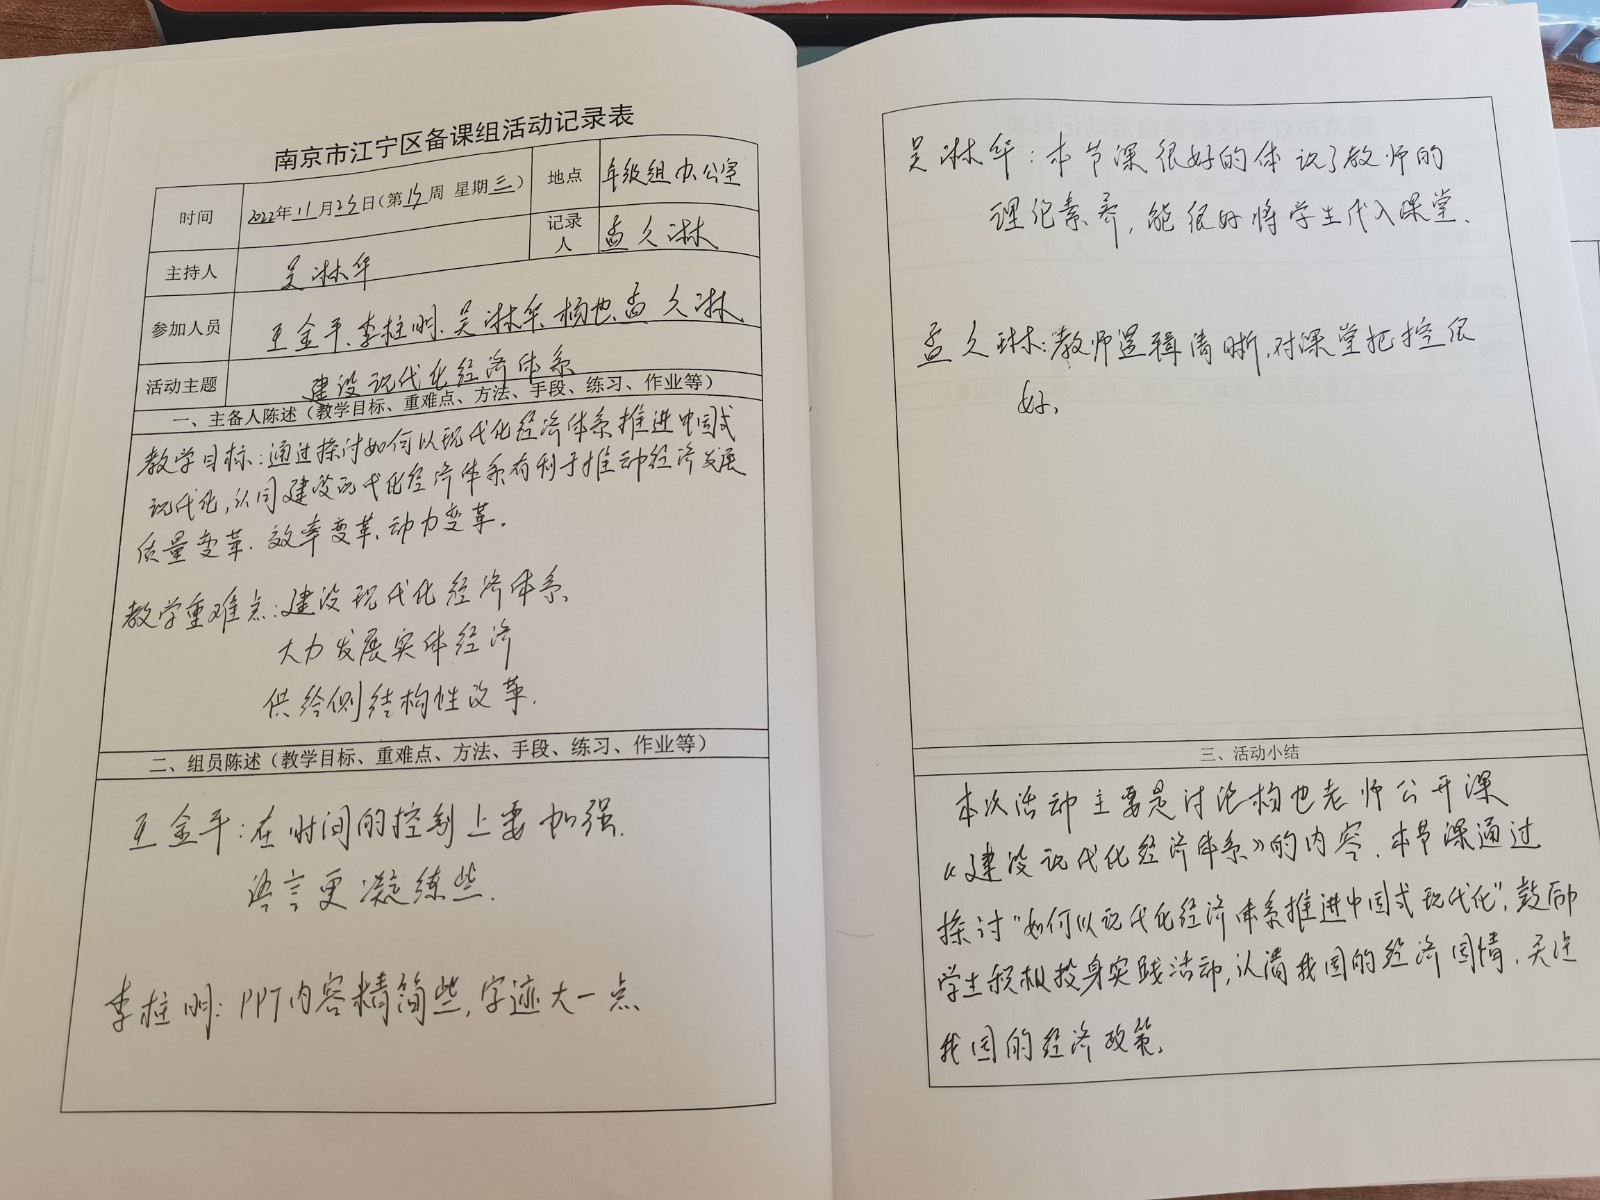 南京市江宁区备课组活动记录表
时间 2022年11月23日(第13周 星期三) 地点 年级组办公室
主持人 吴淋华 记录人 孟久淋
参加人员 王金平、李柱明、吴淋华、杨也、孟久淋
活动主题 建设现代化经济体系
一、主备人陈述（教学目标、重难点、方法、手段、练习、作业等）
教学目标：通过探讨如何以现代化经济体系推进中国式
现代化，认同建设现代化经济体系有利于推动经济发展
质量变革、效率变革、动力变革。
教学重难点：建设现代化经济体系
大力发展实体经济
供给侧结构性改革.
二、组员陈述（教学目标、重难点、方法、手段、练习、作业等）
王金平：在时间的控制上要加强.
语言更凝练些.
李柱明：PPT内容精简些，字迹大一点
吴淋华：本节课很好的体现了教师的
理论素养，能很好将学生代入课堂.
孟久淋：教师逻辑清晰，对课堂把控很
好。
三、活动小结
本次活动主要是讨论杨也老师公开课
《建设现代化经济体系》的内容、本节课通过
探讨“如何以现代化经济体系推进中国式现代化”，鼓励
学生积极投身实践活动，认清我国的经济国情，关注
我国的经济政策。